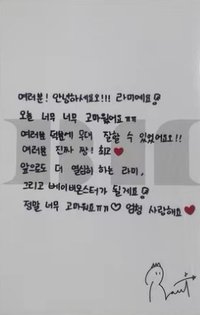 여러분! 안녕하세요오!!! 라미예요
오늘 너무 너무 고마웠어요ㅠㅠ
여러분 덕분에 무대 잘할 수 있었어요!!
여러분 진짜 짱! 최고 ❤
앞으로도 더 열심히 하는 라미,
그리고 베이비몬스터가 될게요
정말 너무 고마워요ㅠㅠ ♡ 엄청 사랑해요 ❤